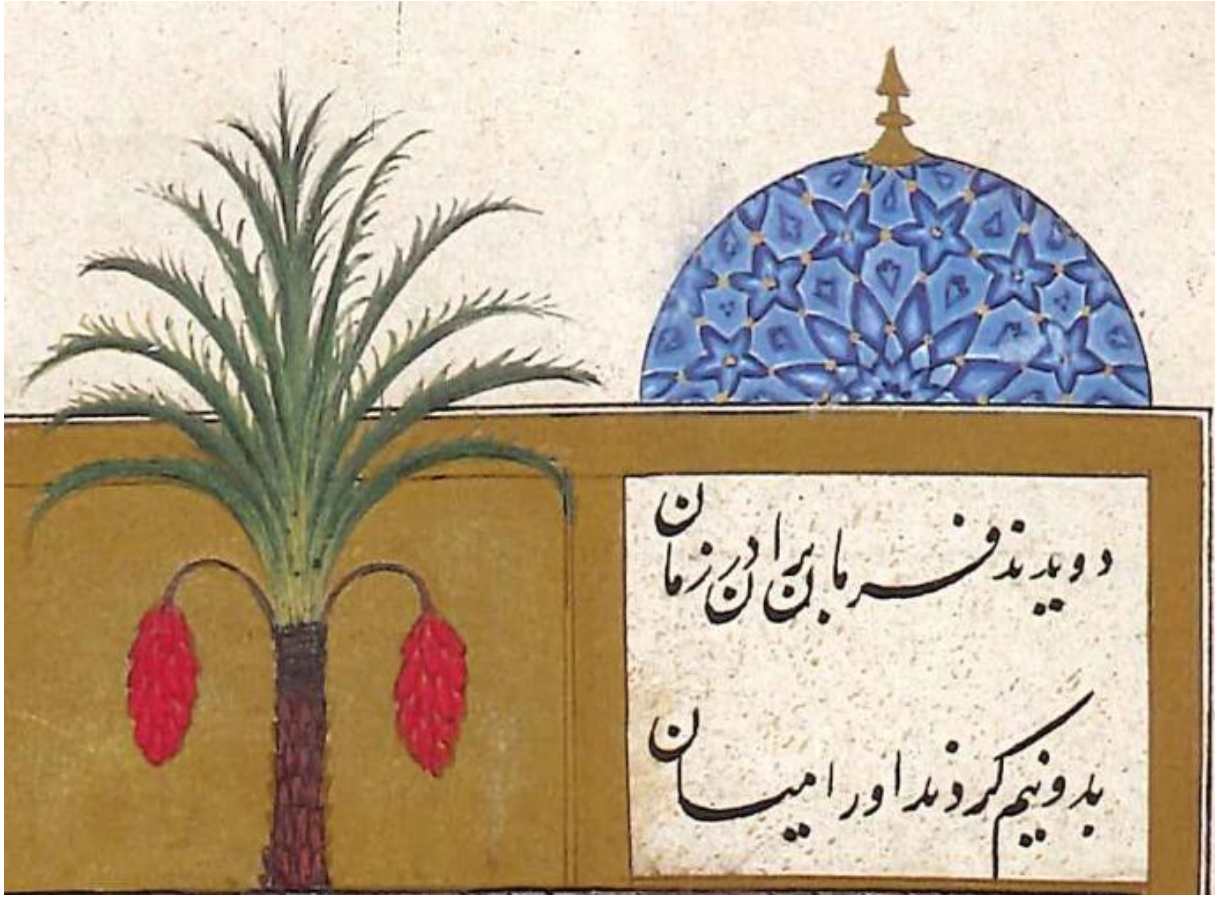 دویدند فرمان‌بران در زمان
بدو نیم کردند او را میان